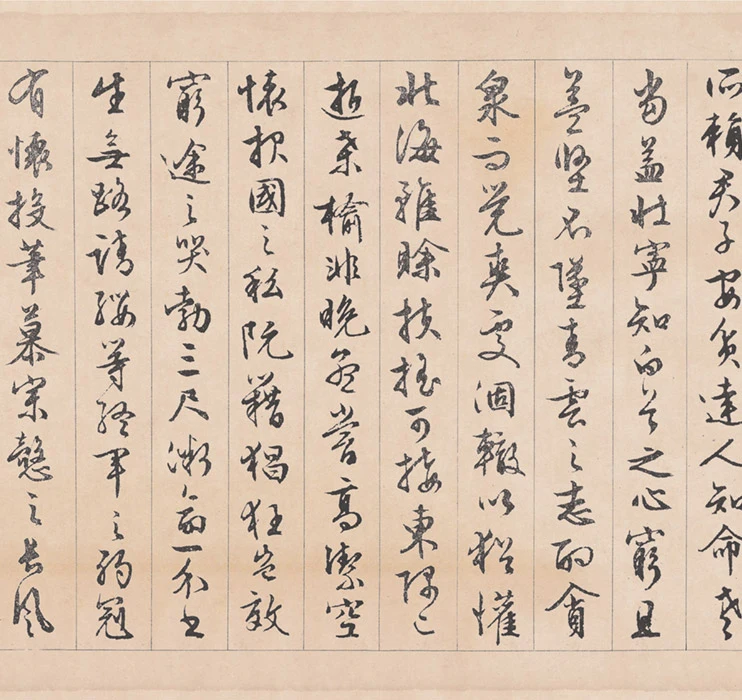 所賴君子安貧達人知命老
當益壯寧知白首之心窮且
益堅不墜青雲之志酌貪
泉而覺爽處涸轍以猶懽
北海雖賒扶搖可接東隅已
逝桑榆非晚孟嘗高潔空
懷報國之私阮籍猖狂豈效
窮途之哭勃三尺微命一介書
生無路請纓等終軍之弱冠
有懷投筆慕宗愨之長風